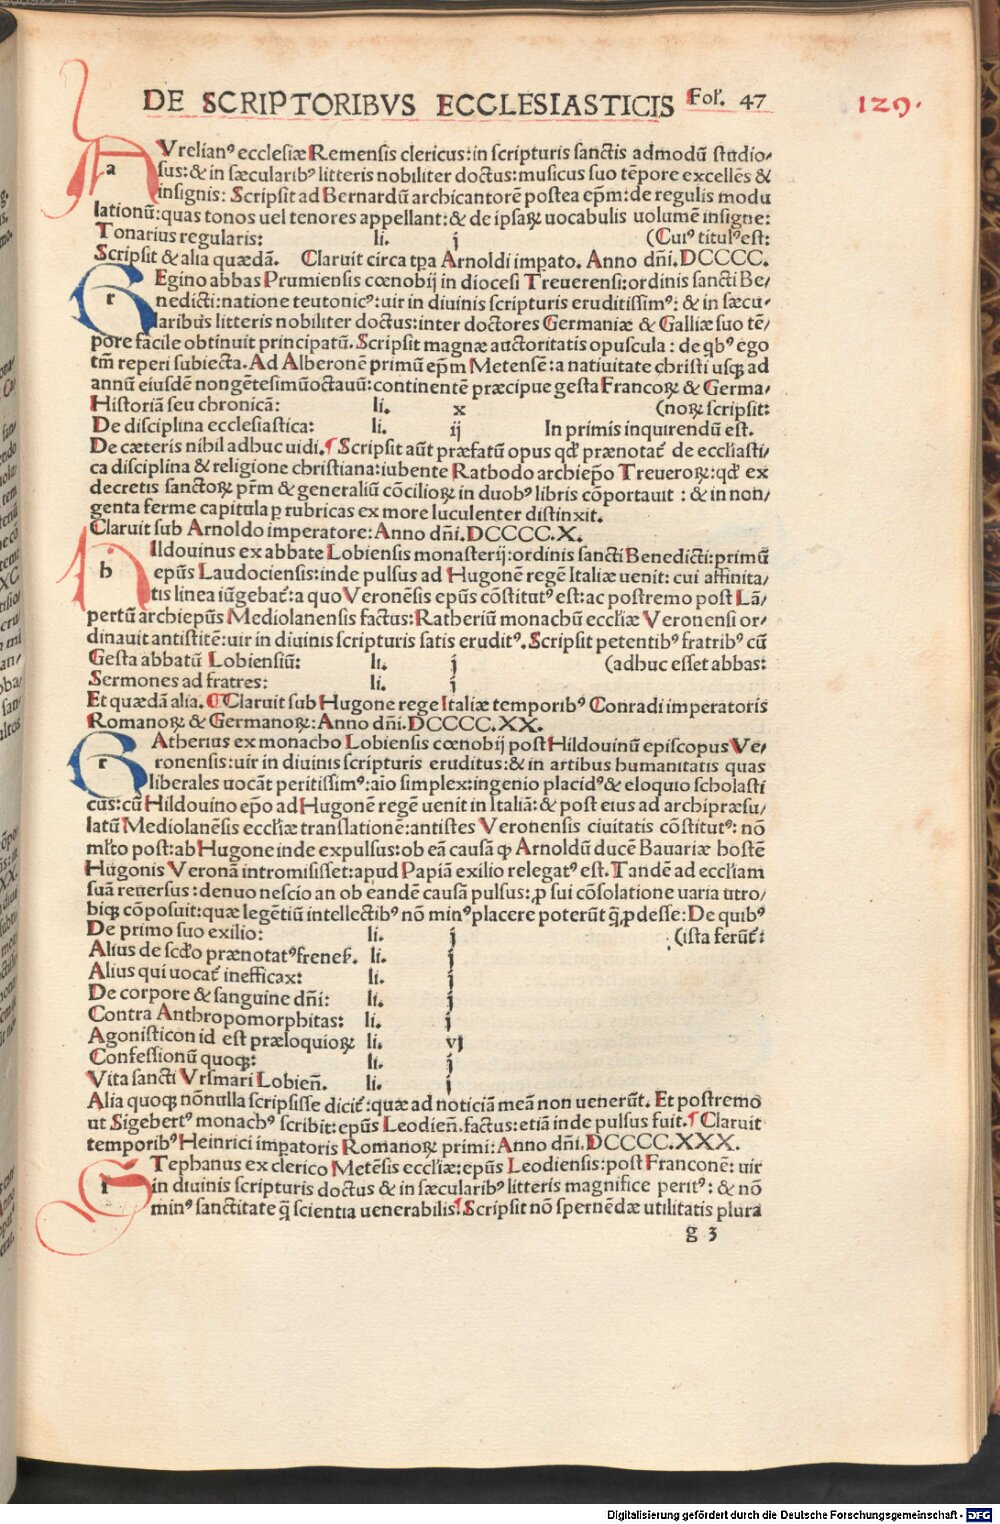 DE SCRIPTORIBVS ECCLESIASTICIS Fol. 47
129.
AVrelianꝰ ecclesiæ Remensis clericus: in scripturis sanctis admodū studio/
sus: & in sæcularibꝰ litteris nobiliter doctus: musicus suo tēpore excellēs &
insignis: Scripsit ad Bernardū archicantorē postea ep̄m: de regulis modu
lationū: quas tonos uel tenores appellant: & de ipsaꝝ uocabulis uolumē insigne:
Tonarius regularis: li. j (Cuiꝰ titulꝰ est:
Scripsit & alia quædā. Claruit circa tp̄a Arnoldi imꝑato. Anno dn̄i. DCCCC.
REgino abbas Prumiensis cœnobij in diocesi Treuerensi: ordinis sancti Be/
nedicti: natione teutonicꝰ: uir in diuinis scripturis eruditissimꝰ: & in sæcu/
laribus litteris nobiliter doctus: inter doctores Germaniæ & Galliæ suo tē/
pore facile obtinuit principatū. Scripsit magnæ auctoritatis opuscula: de qbꝰ ego
tm̄ reperi subiecta. Ad Alberonē primū ep̄m Metensē: a natiuitate christi usqꝫ ad
annū eiusdē nongētesimūoctauū: continentē præcipue gesta Francoꝝ & Germa/
Historiā seu chronicā: li. x (noꝝ scripsit:
De disciplina ecclesiastica: li. ij In primis inquirendū est.
De cæteris nihil adhuc uidi. ¶ Scripsit aūt præfatū opus qd̄ prænotat̄ de eccl̄iasti
ca disciplina & religione christiana: iubente Ratbodo archiep̄o Treueroꝝ: qd̄ ex
decretis sanctoꝝ pr̄m & generaliū cōcilioꝝ in duobꝰ libris cōportauit: & in non/
genta ferme capitula ꝑ rubricas ex more luculenter distinxit.
Claruit sub Arnoldo imperatore: Anno dn̄i. DCCCC.X.
HIldouinus ex abbate Lobiensis monasterij: ordinis sancti Benedicti: primū
ep̄us Laudociensis: inde pulsus ad Hugonē regē Italiæ uenit: cui affinita/
tis linea iūgebat̄: a quo Veronēsis ep̄us cōstitutꝰ est: ac postremo post Lā/
pertū archiep̄us Mediolanensis factus: Ratheriū monachū eccl̄iæ Veronensi or/
dinauit antistitē: uir in diuinis scripturis satis eruditꝰ. Scripsit petentibꝰ fratribꝰ cū
Gesta abbatū Lobiensiū: li. j (adhuc esset abbas:
Sermones ad fratres: li. j
Et quædā alia. ¶ Claruit sub Hugone rege Italiæ temporibꝰ Conradi imperatoris
Romanoꝝ & Germanoꝝ: Anno dn̄i. DCCCC.XX.
RAtherius ex monacho Lobiensis cœnobij post Hildouinū episcopus Ve/
ronensis: uir in diuinis scripturis eruditus: & in artibus humanitatis quas
liberales uocāt peritissimꝰ: aīo simplex: ingenio placidꝰ & eloquio scholasti
cus: cū Hildouino ep̄o ad Hugonē regē uenit in Italiā: & post eius ad archipræsu/
latū Mediolanēsis eccl̄iæ translationē: antistes Veronensis ciuitatis cōstitutꝰ: nō
ml̄to post: ab Hugone inde expulsus: ob eā causā ꝙ Arnoldū ducē Bauariæ hostē
Hugonis Veronā intromisisset: apud Papiā exilio relegatꝰ est. Tandē ad eccl̄iam
suā reuersus: denuo nescio an ob eandē causā pulsus: ꝓ sui cōsolatione uaria utro/
biqꝫ cōposuit: quæ legētiū intellectibꝰ nō minꝰ placere poterūt q̄ ꝓdesse: De quibꝰ
De primo suo exilio: li. j (ista ferūt̄:
Alius de scd̄o prænotatꝰ frenes. li. j
Alius qui uocat̄ inefficax: li. j
De corpore & sanguine dn̄i: li. j
Contra Anthropomorphitas: li. j
Agonisticon id est præloquioꝝ li. vj
Confessionū quoqꝫ: li. j
Vita sancti Vrsmari Lobien̄. li. j
Alia quoqꝫ nōnulla scripsisse dicit̄: quæ ad noticiā meā non uenerūt. Et postremo
ut Sigebertꝰ monachꝰ scribit: ep̄us Leodien̄. factus: etiā inde pulsus fuit. ¶ Claruit
temporibꝰ Heinrici imꝑatoris Romanoꝝ primi: Anno dn̄i. DCCCC.XXX.
STephanus ex clerico Metēsis eccl̄iæ: ep̄us Leodiensis: post Franconē: uir
in diuinis scripturis doctus & in sæcularibꝰ litteris magnifice peritꝰ: & nō
minꝰ sanctitate q̄ scientia uenerabilis. ¶ Scripsit nō spernēdæ utilitatis plura
g 3
Digitalisierung gefördert durch die Deutsche Forschungsgemeinschaft - DFG